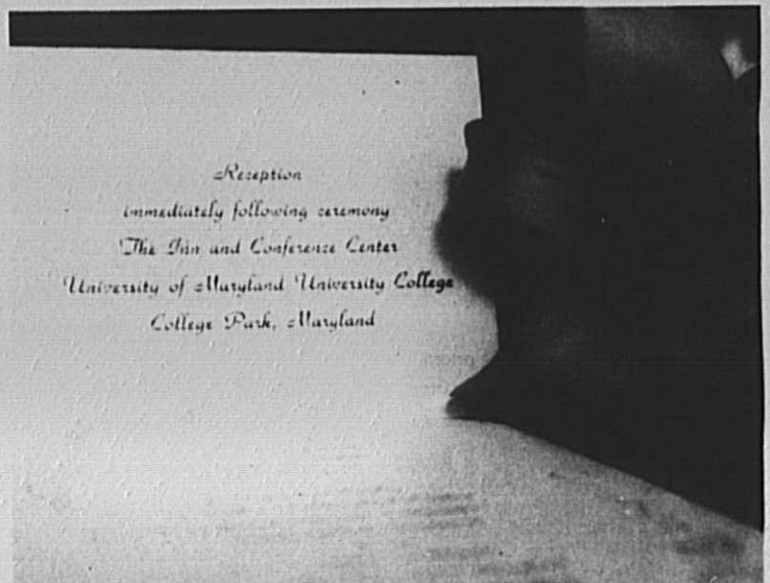 Reception
immediately following ceremony
The Inn and Conference Center
University of Maryland University College
College Park, Maryland